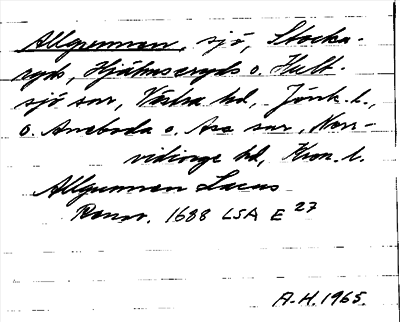 Allgunnen, sjö, Stocka-
ryds, Hjälmseryds o. Hult-
sjö snr, Västra hd, Jönk. l.,
o. Aneboda o. Asa snr, Norr-
vidinge hd, Kron. l.
Allgunnen Lacus
Ranw. 1688 LSA E 27
A.H. 1965.